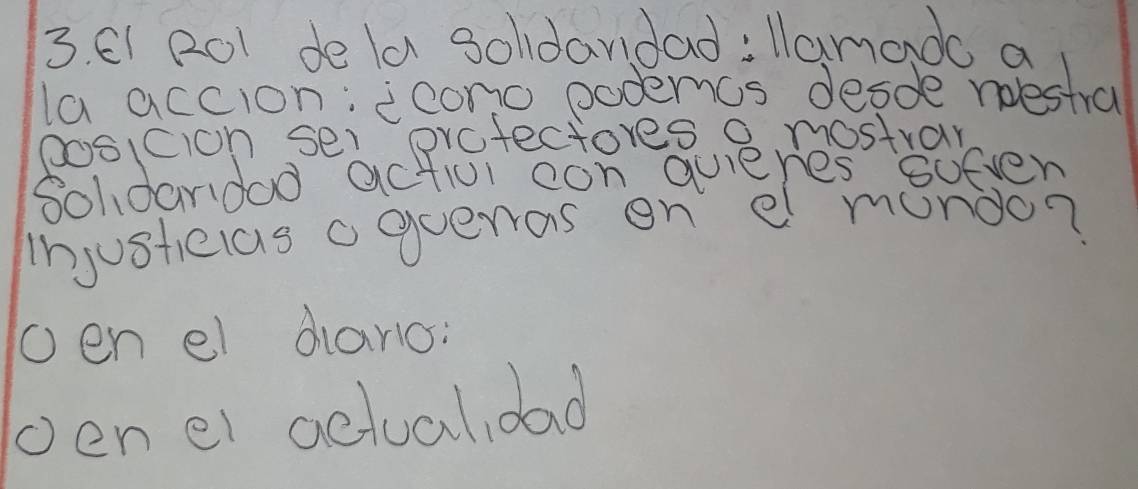 3. El Rol de la solidaridad: llamado a
la accion: ¿como podemos desde nuestra
posicion ser protectores o mostrar
solidaridad activi con quienes sufren
injusticias o guerras en el mundo?
o en el diario:
o en el actualidad